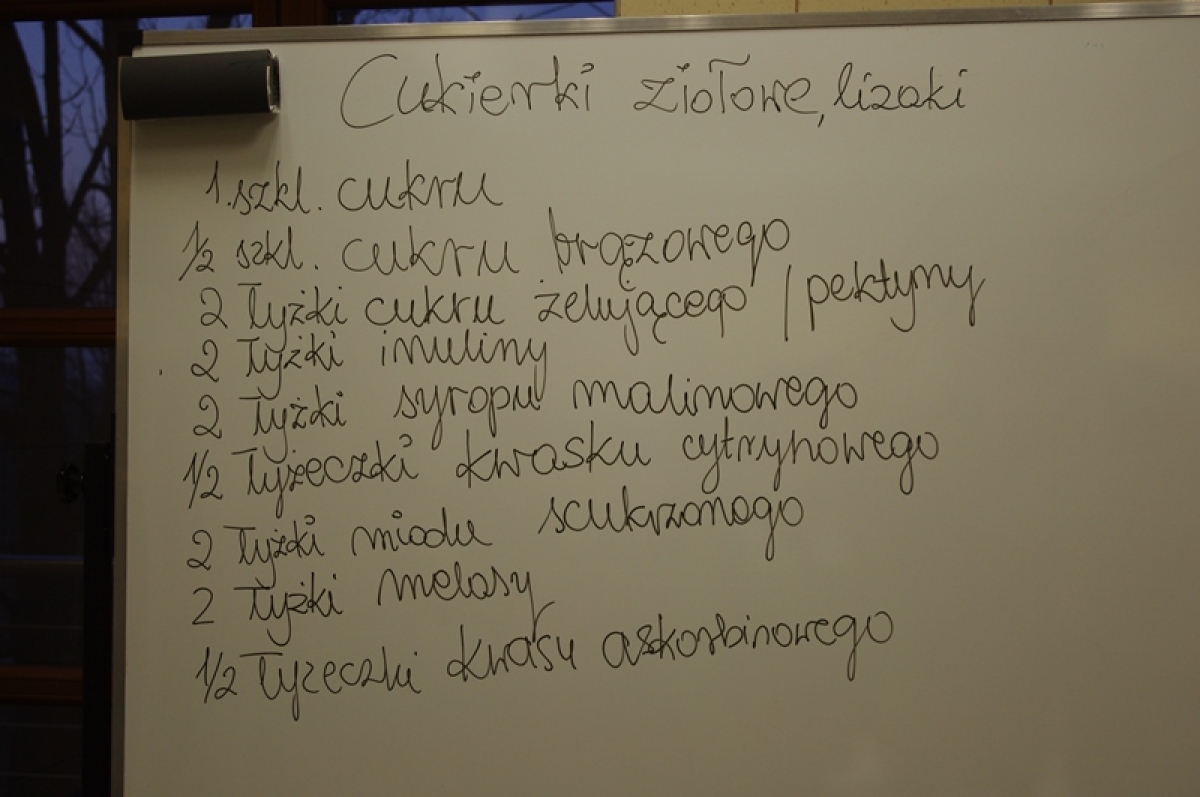 Cukierki ziołowe, lizaki
1. szkl. cukru
1/2 szkl. cukru brązowego
2 łyżki cukru żelującego / pektyny
2 łyżki inuliny
2 łyżki syropu malinowego
1/2 łyżeczki kwasku cytrynowego
2 łyżki miodu scukrzonego
2 łyżki melasy
1/2 łyżeczki kwasu askorbinowego